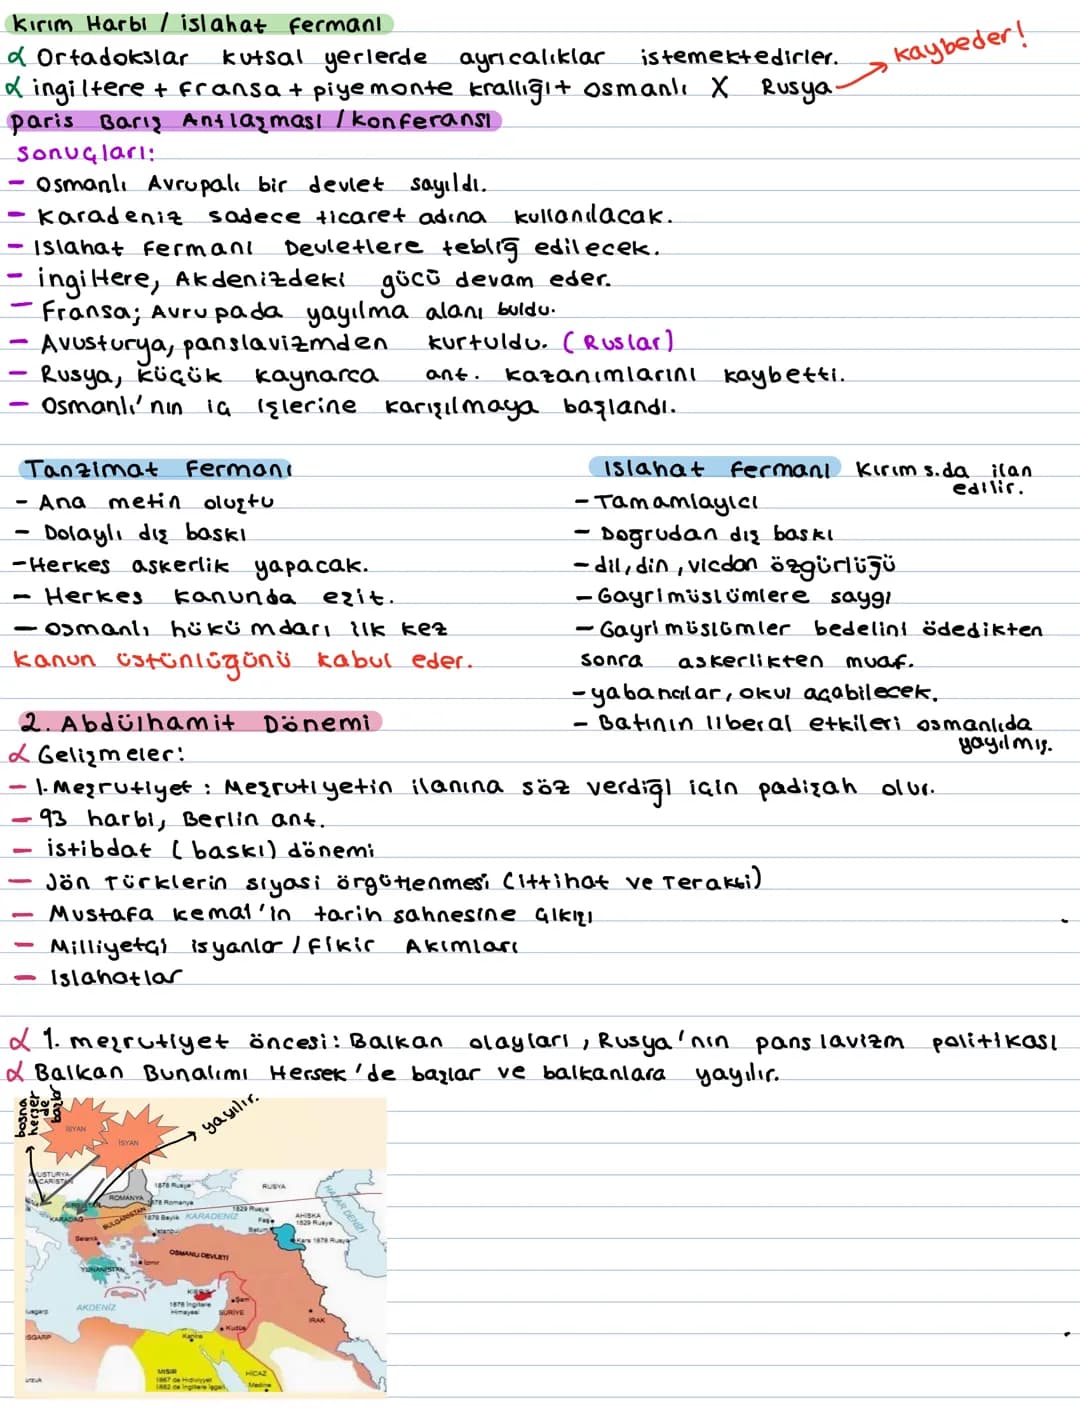 Kırım Harbi / islahat Fermanı
α Ortadokslar kutsal yerlerde ayrıcalıklar istemektedirler.
α ingiltere + Fransa + piyemonte krallığı + osmanlı X Rusya → kaybeder!
paris Barış Antlaşması / konferansı
Sonuçları:
- Osmanlı Avrupalı bir devlet sayıldı.
- Karadeniz sadece ticaret adına kullanılacak.
- Islahat Fermanı Devletlere tebliğ edilecek.
- ingiltere, Akdenizdeki gücü devam eder.
- Fransa; Avrupada yayılma alanı buldu.
- Avusturya, panslavizmden kurtuldu. (Ruslar)
- Rusya, küçük kaynarca ant. kazanımlarını kaybetti.
- Osmanlı'nın iç işlerine karışılmaya başlandı.
Tanzimat Fermanı
- Ana metin oluştu
- Dolaylı dış baskı
- Herkes askerlik yapacak.
- Herkes kanunda eşit.
- osmanlı hükümdarı ilk kez
kanun üstünlüğünü kabul eder.
Islahat Fermanı Kırım s.da ilan
edilir.
- Tamamlayıcı
- Doğrudan dış baskı
- dil, din, vicdan özgürlüğü
- Gayrimüslümlere saygı
- Gayrimüslümler bedelini ödedikten
sonra askerlikten muaf.
- yabancılar, okul açabilecek.
- Batının liberal etkileri osmanlıda
yayılmış.
2. Abdülhamit Dönemi
α Gelişmeler:
- 1. Meşrutiyet : Meşrutiyetin ilanına söz verdiği için padişah olur.
- 93 harbi, Berlin ant.
- istibdat (baskı) dönemi
- Jön Türklerin siyasi örgütlenmesi (ittihat ve Terakki)
- Mustafa kemal'in tarih sahnesine çıkışı
- Milliyetçi isyanlar / Fikir Akımları
- Islahatlar
α 1. meşrutiyet öncesi: Balkan olayları, Rusya'nın panslavizm politikası
α Balkan Bunalımı Hersek'de başlar ve balkanlara yayılır.
bosna
herser
de
başlar
yayılır.
İSYAN
İSYAN
AVUSTURYA-
MACARİSTAN
ROMANYA
1878 Rusya
RUSYA
1878 Romanya
SIRBİSTAN
KARADAĞ
BULGARİSTAN
1878 Bağlı
KARADENİZ
1829 Rusya
Faşe
Batum
AHISKA
1829 Rusya
HAZAR DENİZİ
Kars 1878 Rusya
Selanik
İstanbul
OSMANLI DEVLETİ
İzmir
YUNANİSTAN
AKDENİZ
KIBRIS
1878 İngiltere
Himayesi
Şam
SURİYE
Kudüs
IRAK
Kahire
MISIR
1867 de Hidiviyyet
1882 de İngiltere İşgali
HİCAZ
Medine